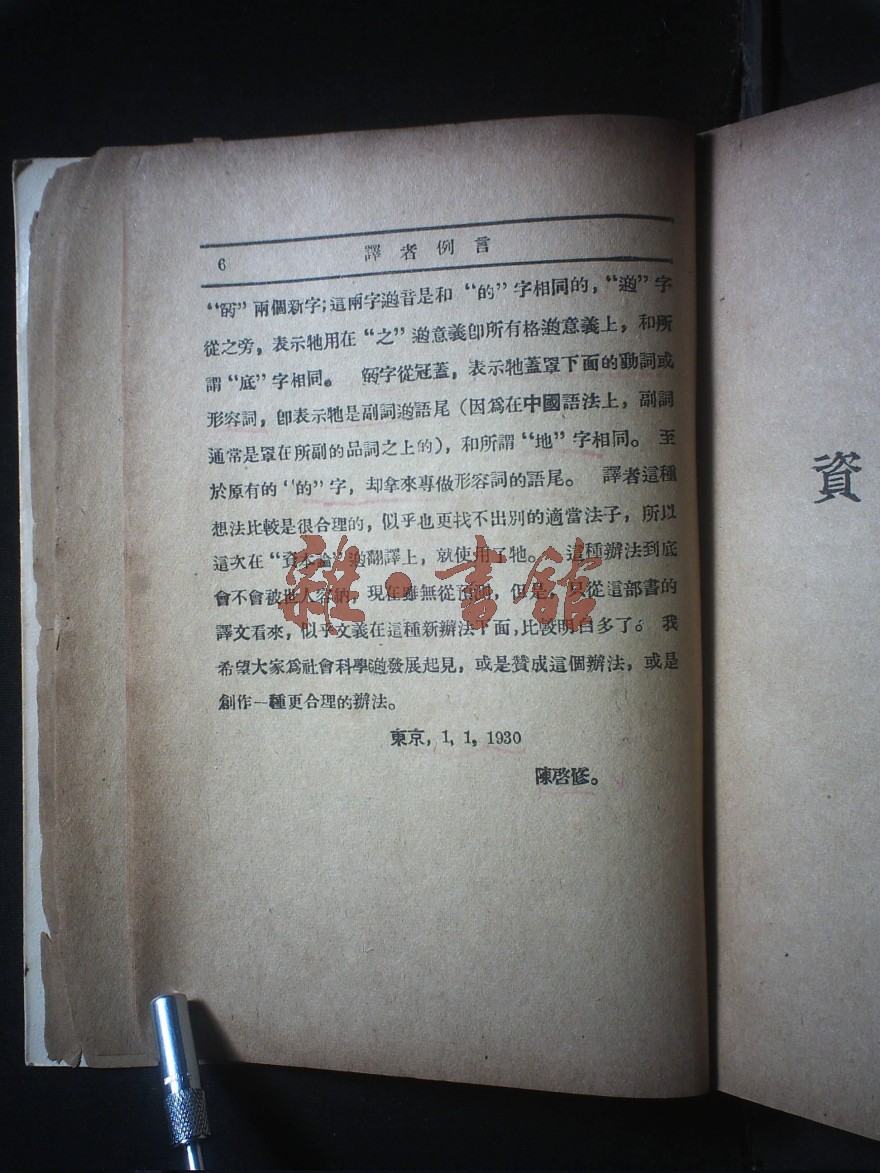 6 譯者例言
“⿱冖的” 兩個新字;這兩字⿺辶的音是和 “的” 字相同的,“⿺辶的” 字
從之旁,表示牠用在 “之” ⿺辶的意義卽所有格⿺辶的意義上,和所
謂 “底” 字相同。 ⿱冖的字從冠蓋,表示牠蓋罩下面的動詞或
形容詞,卽表示牠是副詞⿺辶的語尾(因爲在中國語法上,副詞
通常是罩在所副的品詞之上的),和所謂 “地” 字相同。 至
於原有的 “的” 字,却拿來專做形容詞的語尾。 譯者這種
想法比較是很合理的,似乎也更找不出別的適當法子,所以
這次在 “資本論” ⿺辶的翻譯上,就使用了牠。 這種辦法到底
會不會被世人容納,現在雖無從預測,但是,只從這部書的
譯文看來,似乎文義在這種新辦法下面,比較明白多了。 我
希望大家爲社會科學⿺辶的發展起見,或是贊成這個辦法,或是
創作一種更合理的辦法。
東京, 1, 1, 1930
陳啓修。
資
雜·書館